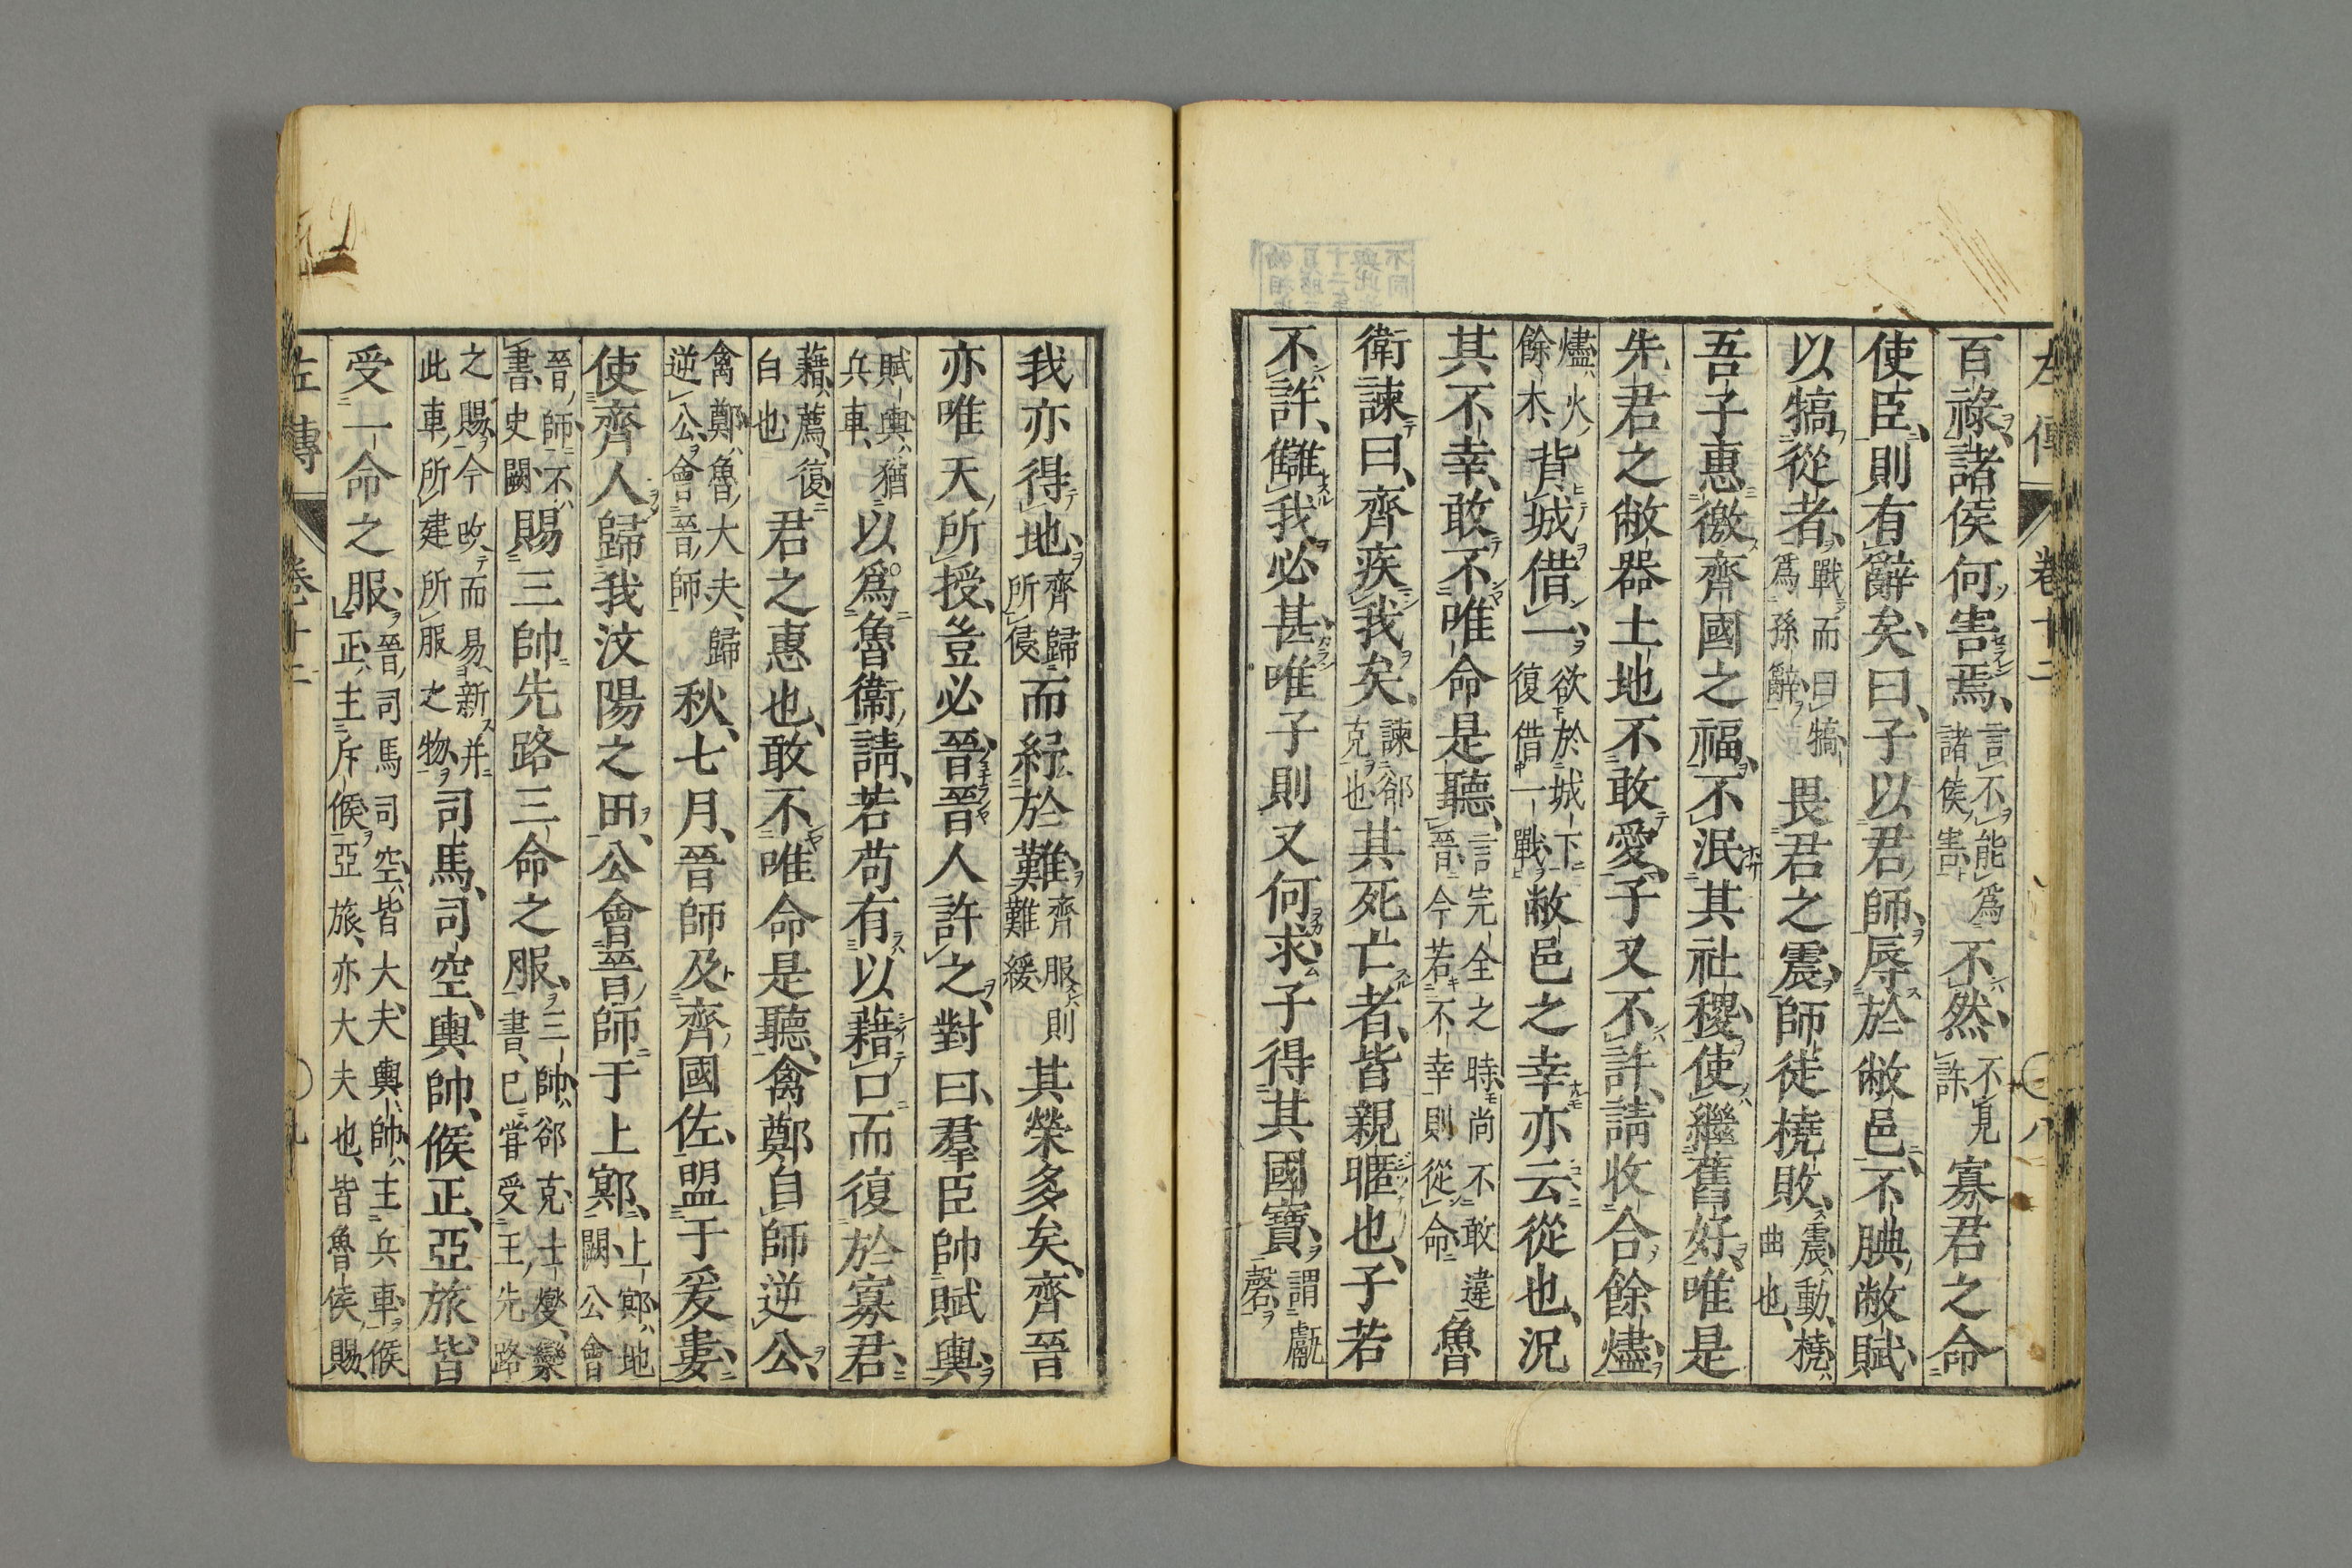 左傳 卷十二 八
百祿諸侯何害焉言不能爲諸侯害不然不見許寡君之命
使臣則有辭矣曰子以君師辱於敝邑不腆敝賦
以犒從者戰而曰犒爲孫辭畏君之震師徒橈敗震動橈曲也
吾子惠徼齊國之福不泯其社稷使繼舊好唯是
先君之敝器土地不敢愛子又不許請收合餘燼
燼火餘木背城借一欲於城下復借一戰敝邑之幸亦云從也況
其不幸敢不唯命是聽言完全之時尚不敢違晉今若不幸則從命魯
衛諫曰齊疾我矣諫郤克也其死亡者皆親暱也子若
不許讎我必甚唯子則又何求子得其國寶謂甗磬
我亦得地齊歸所侵而紓於難齊服則難緩其榮多矣齊晉
亦唯天所授豈必晉晉人許之對曰羣臣帥賦輿
賦輿猶兵車以爲魯衛請若苟有以藉口而復於寡君
藉薦復白也君之惠也敢不唯命是聽禽鄭自師逆公
禽鄭魯大夫歸逆公會晉師秋七月晉師及齊國佐盟于爰婁
使齊人歸我汶陽之田公會晉師于上鄍上鄍地闕公會
晉師不書史闕賜三帥先路三命之服三帥郤克士燮欒書已嘗受王先路
之賜今改而易新并此車所建所服之物司馬司空輿帥候正亞旅皆
受一命之服晉司馬司空皆大夫輿帥主兵車候正主斥候亞旅亦大夫也皆魯侯賜
左傳 卷十二 九